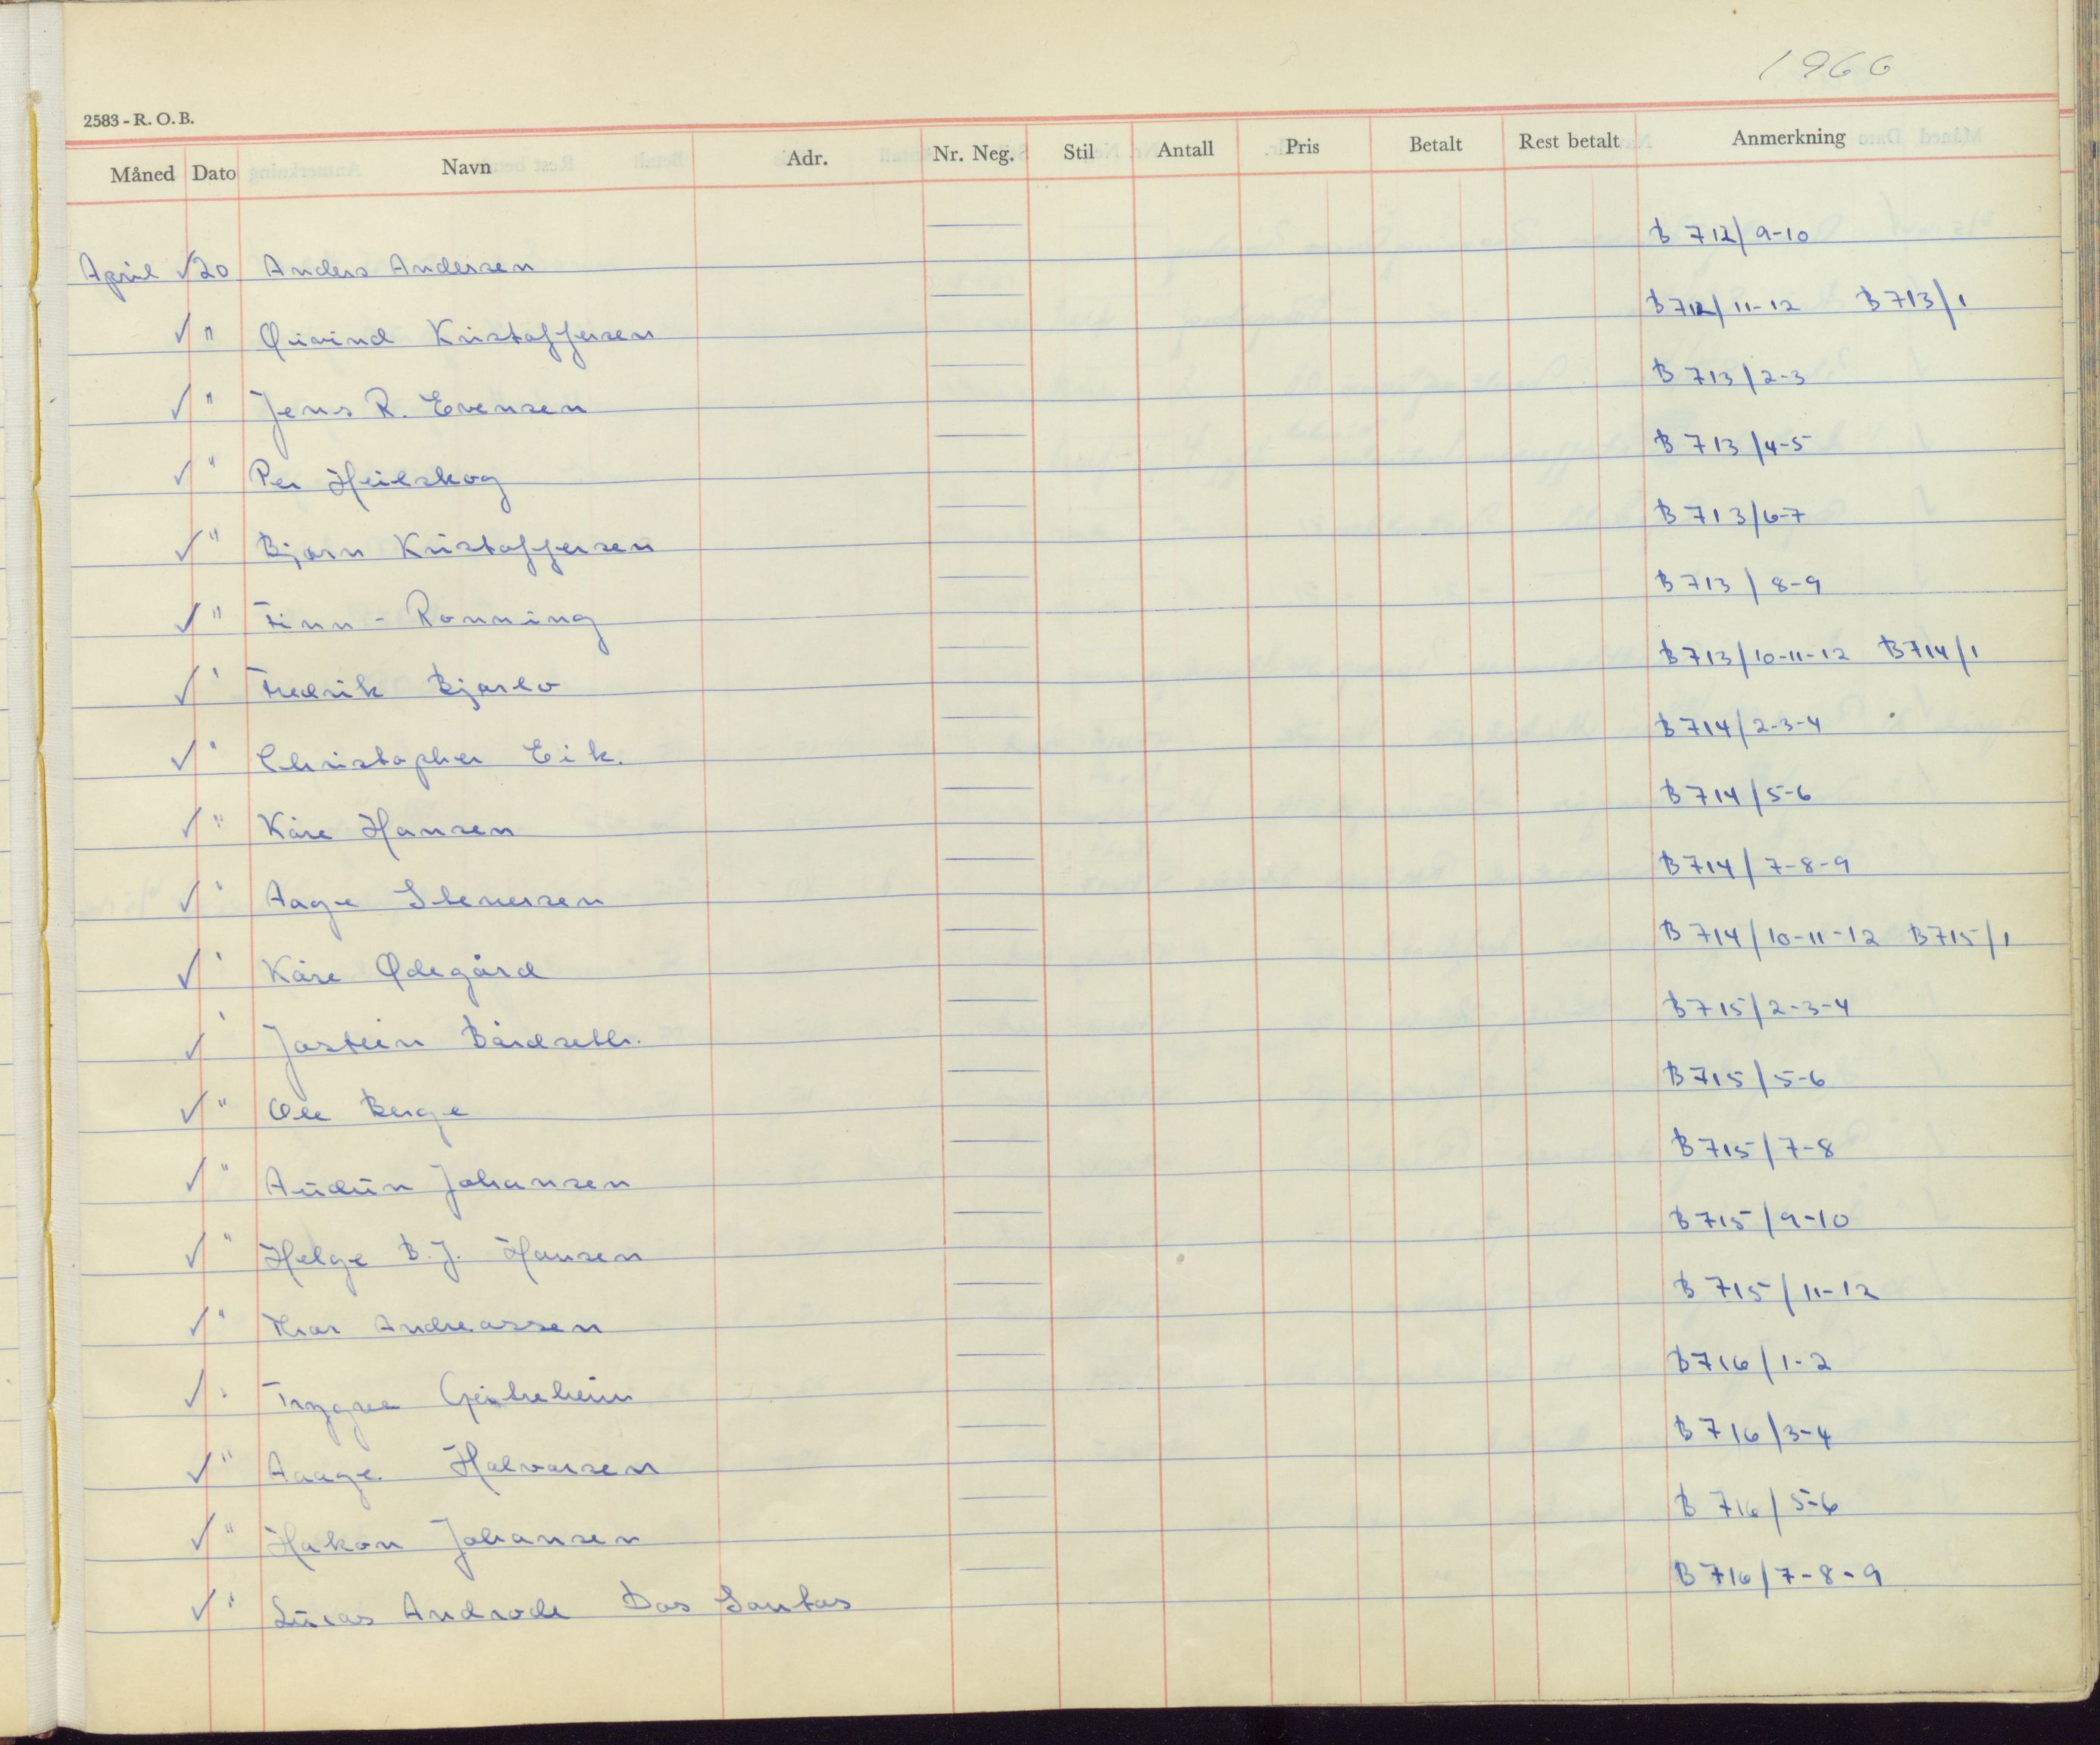 1966
2583 - R. O. B.
Måned Dato Navn Adr. Nr. Neg. Stil Antall Pris Betalt Rest betalt Anmerkning
April √ 20 Anders Andersen — B 712/9-10
√ " Øivind Kristoffersen — B 712/11-12 B 713/1
√ " Jens R. Evensen — B 713/2-3
√ " Per Heilskog — B 713/4-5
√ " Bjørn Kristoffersen — B 713/6-7
√ " Finn - Rønning — B 713/8-9
√ " Fredrik Bjørlo — B 713/10-11-12 B 714/1
√ " Christopher Eik. — B 714/2-3-4
√ " Kåre Hansen — B 714/5-6
√ " Aage Stenersen — B 714/7-8-9
√ " Kåre Ødegård — B 714/10-11-12 B 715/1
√ " Jostein Bårdseth. — B 715/2-3-4
√ " Ole Berge — B 715/5-6
√ " Audun Johansen — B 715/7-8
√ " Helge B. J. Hansen — B 715/9-10
√ " Thor Andreassen — B 715/11-12
√ " Trygve — B 716/1-2
√ " Aage Halvorsen — B 716/3-4
√ " Håkon Johansen — B 716/5-6
√ " Lucas Androde Dos Santos — B 716/7-8-9